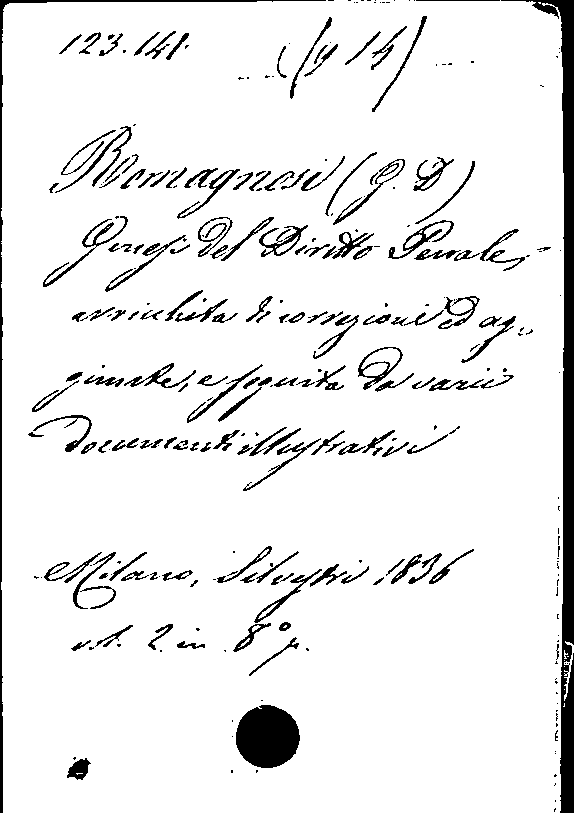 123.141.
(y 14)
Romagnosi (G. D)
Genesi del Diritto Penale,
arricchita di correzioni ed ag-
giunte, e seguita da varii
documenti illustrativi
Milano, Silvestri 1836
vol. 2 in 8º p.